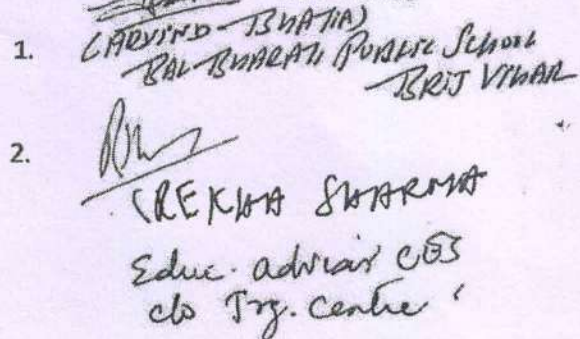 1. (ARVIND BHATIA)
BAL BHARATI PUBLIC SCHOOL
BRIJ VIHAR
2.
(REKHA SHARMA
Educ. advisor CES
c/o Trg. Centre